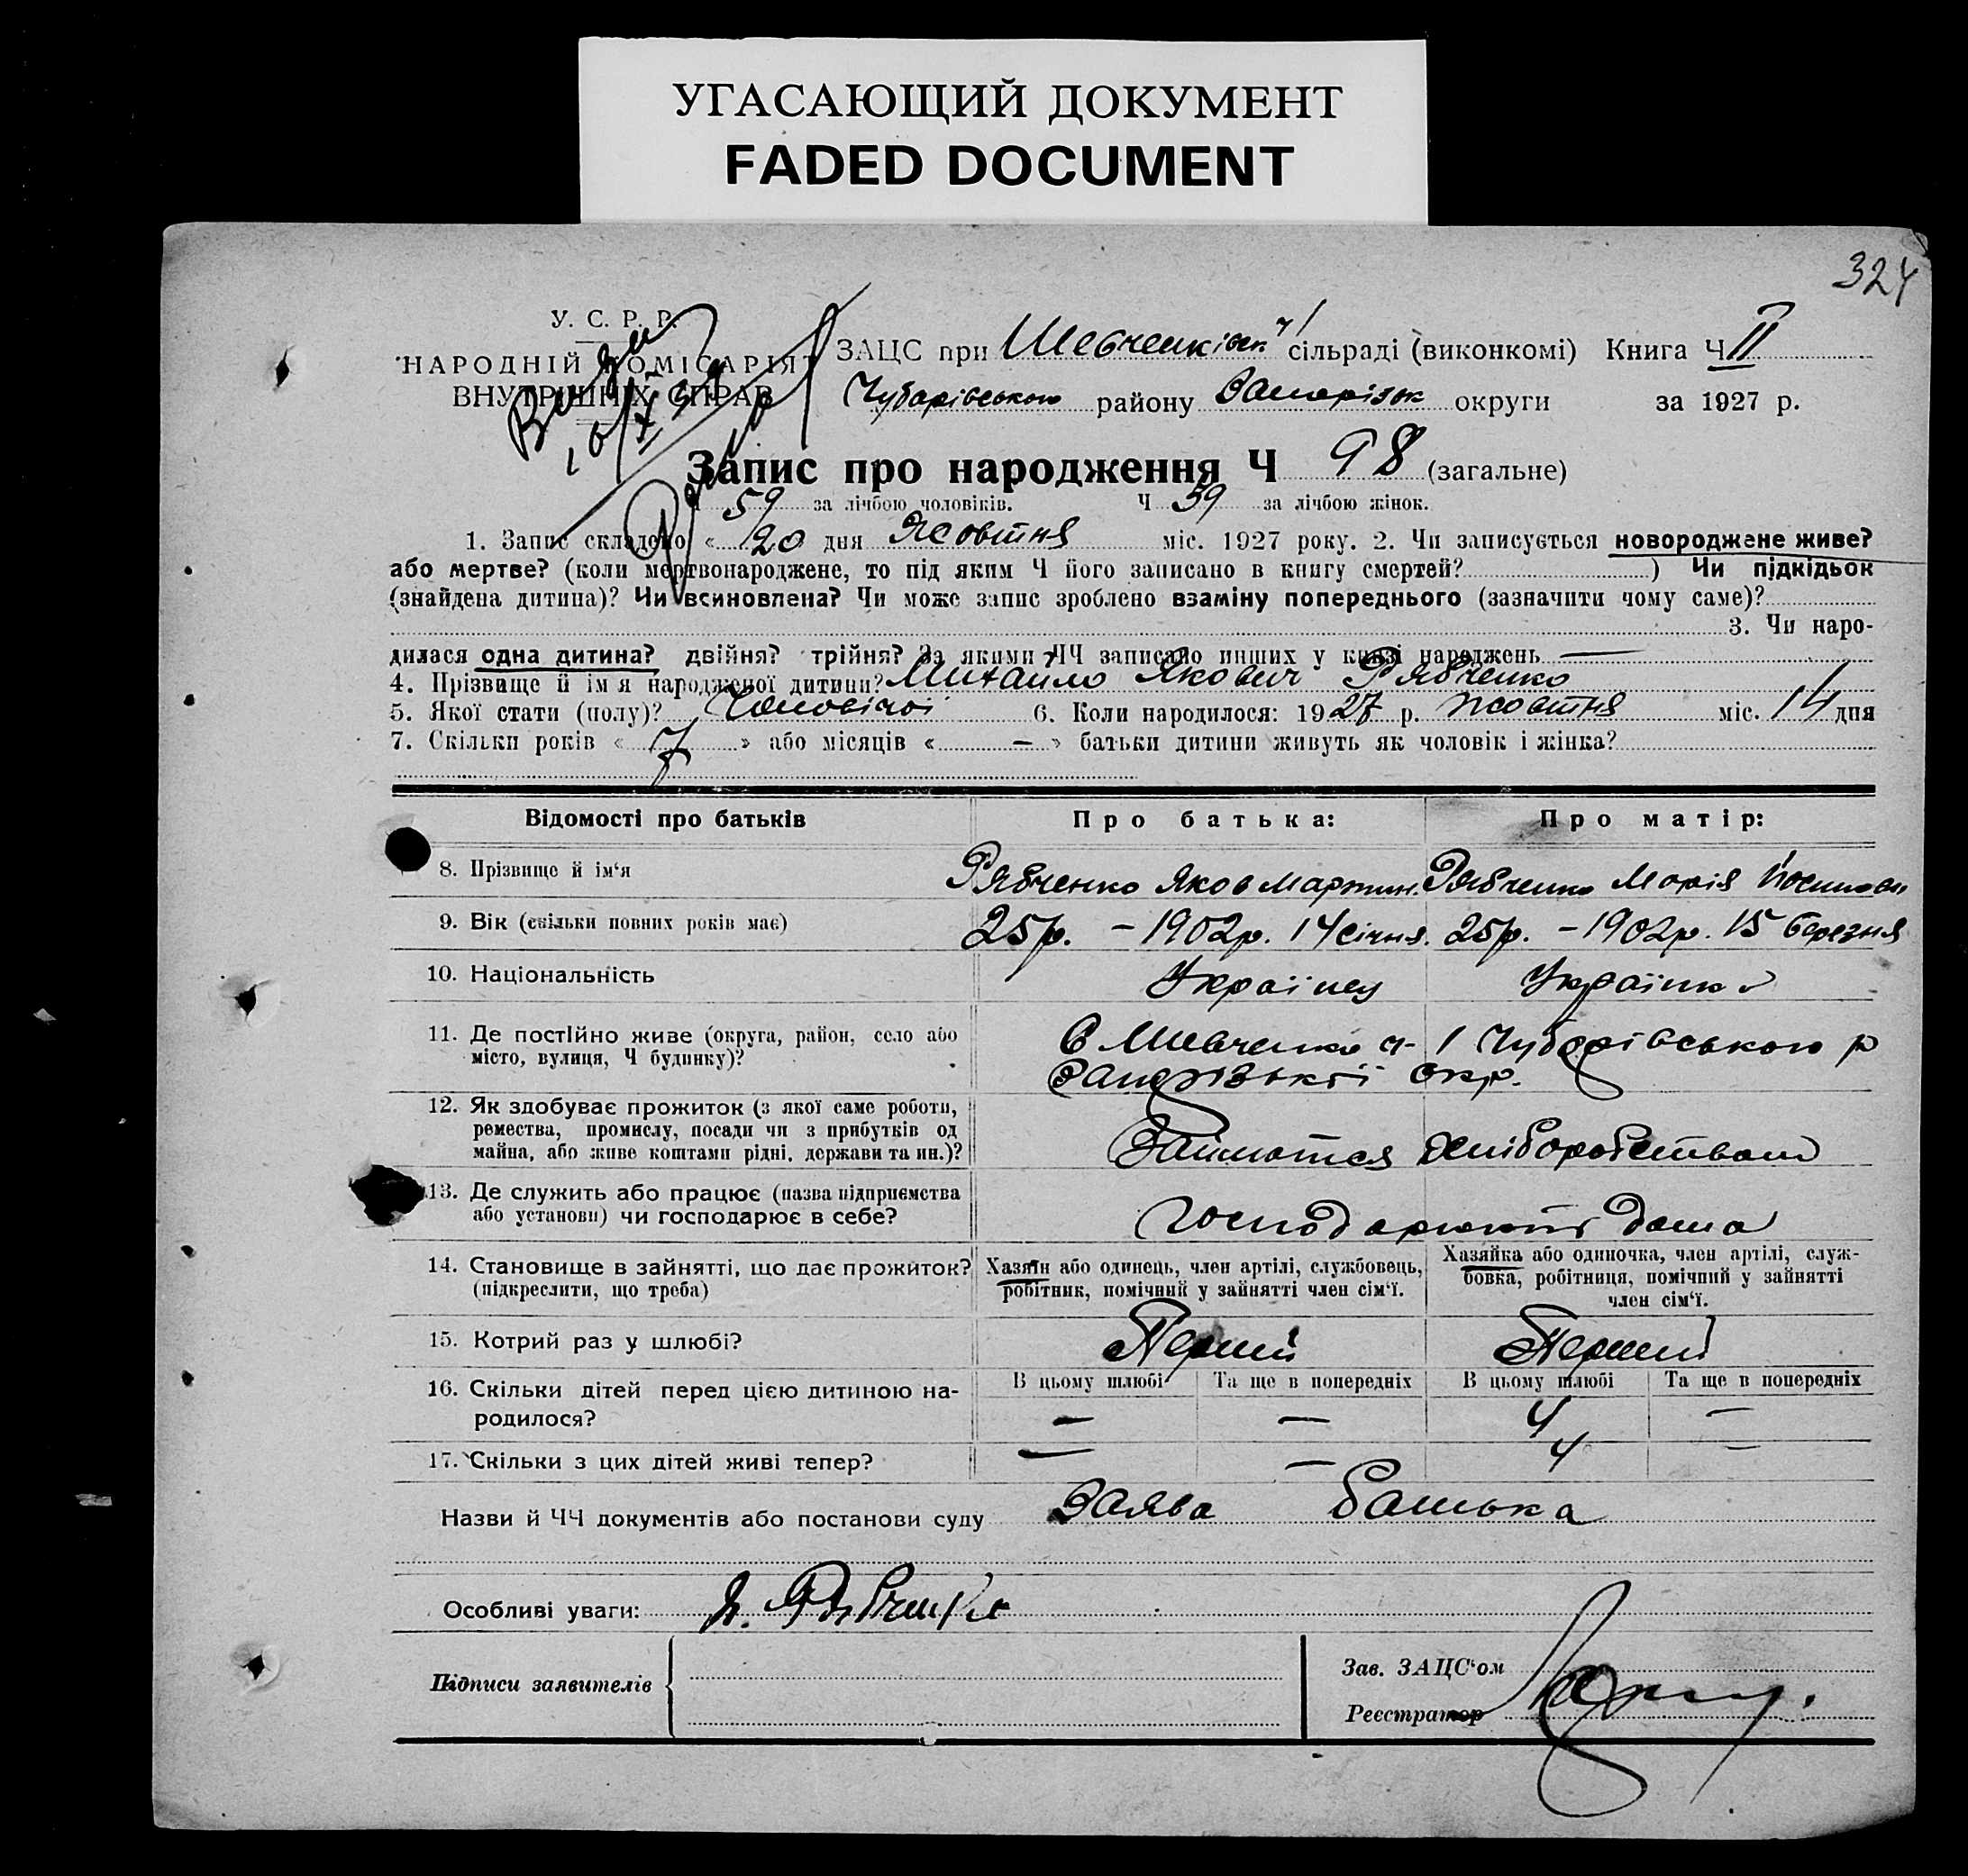 УГАСАЮЩИЙ ДОКУМЕНТ
FADED DOCUMENT
324
У. С. Р. Р.
НАРОДНІЙ КОМІСАРІЯТ
ВНУТРІШНІХ СПРАВ
ЗАЦС при Шевченківськ. сільраді (виконкомі) Книга Ч II
Чубарівського району Запорізьк округи за 1927 р.
Запис про народження Ч 98 (загальне)
Ч 59 за лічбою чоловіків. Ч 39 за лічбою жінок.
1. Запис складено « 20 дня Жовтня міс. 1927 року. 2. Чи записується новороджене живе?
або мертве? (коли мертвонароджене, то під яким Ч його записано в книгу смертей? ) Чи підкідьок
(знайдена дитина)? Чи всиновлена? Чи може запис зроблено взаміну попереднього (зазначити чому саме)?
3. Чи наро-
дилася одна дитина? двійня? трійня? За якими ЧЧ записано инших у книзі народжень —
4. Прізвище й ім'я народженої дитини? Михайло Якович Рябченко
5. Якої стати (полу)? Чоловічої 6. Коли народилося: 1927 р. жовтня міс. 14 дня
7. Скільки років « 7 » або місяців « — » батьки дитини живуть як чоловік і жінка?
Відомості про батьків Про батька: Про матір:
8. Прізвище й ім'я Рябченко Яков Мартин. Рябченко Марія Йосипов
9. Вік (скільки повних років має) 25р. – 1902р. 14 січня. 25р. – 1902р. 15 березня
10. Національність Українец Українка
11. Де постійно живе (округа, район, село або Чубарівського р
місто, вулиця, Ч будинку)? Запорізької окр.
12. Як здобуває прожиток (з якої саме роботи,
ремества, промислу, посади чи з прибутків од
майна, або живе коштами рідні, держави та ин.)? Займаются хліборобством
13. Де служить або працює (назва підприємства
або установи) чи господарює в себе? господарюють дома
14. Становище в зайнятті, що дає прожиток? Хазяїн або одинець, член артілі, службовець, Хазяйка або одиночка, член артілі, служ-
(підкреслити, що треба) робітник, помічний у зайнятті член сім'ї. бовка, робітниця, помічний у зайнятті
член сім'ї.
15. Котрий раз у шлюбі? Перший Перший
16. Скільки дітей перед цією дитиною на- В цьому шлюбі Та ще в попередніх В цьому шлюбі Та ще в попередніх
родилося? — — 4 —
17. Скільки з цих дітей живі тепер? — — 4 —
Назви й ЧЧ документів або постанови суду Заява батька
Особливі уваги: Я. Рябченко
Підписи заявителів
Зав. ЗАЦС'ом
Реєстратор